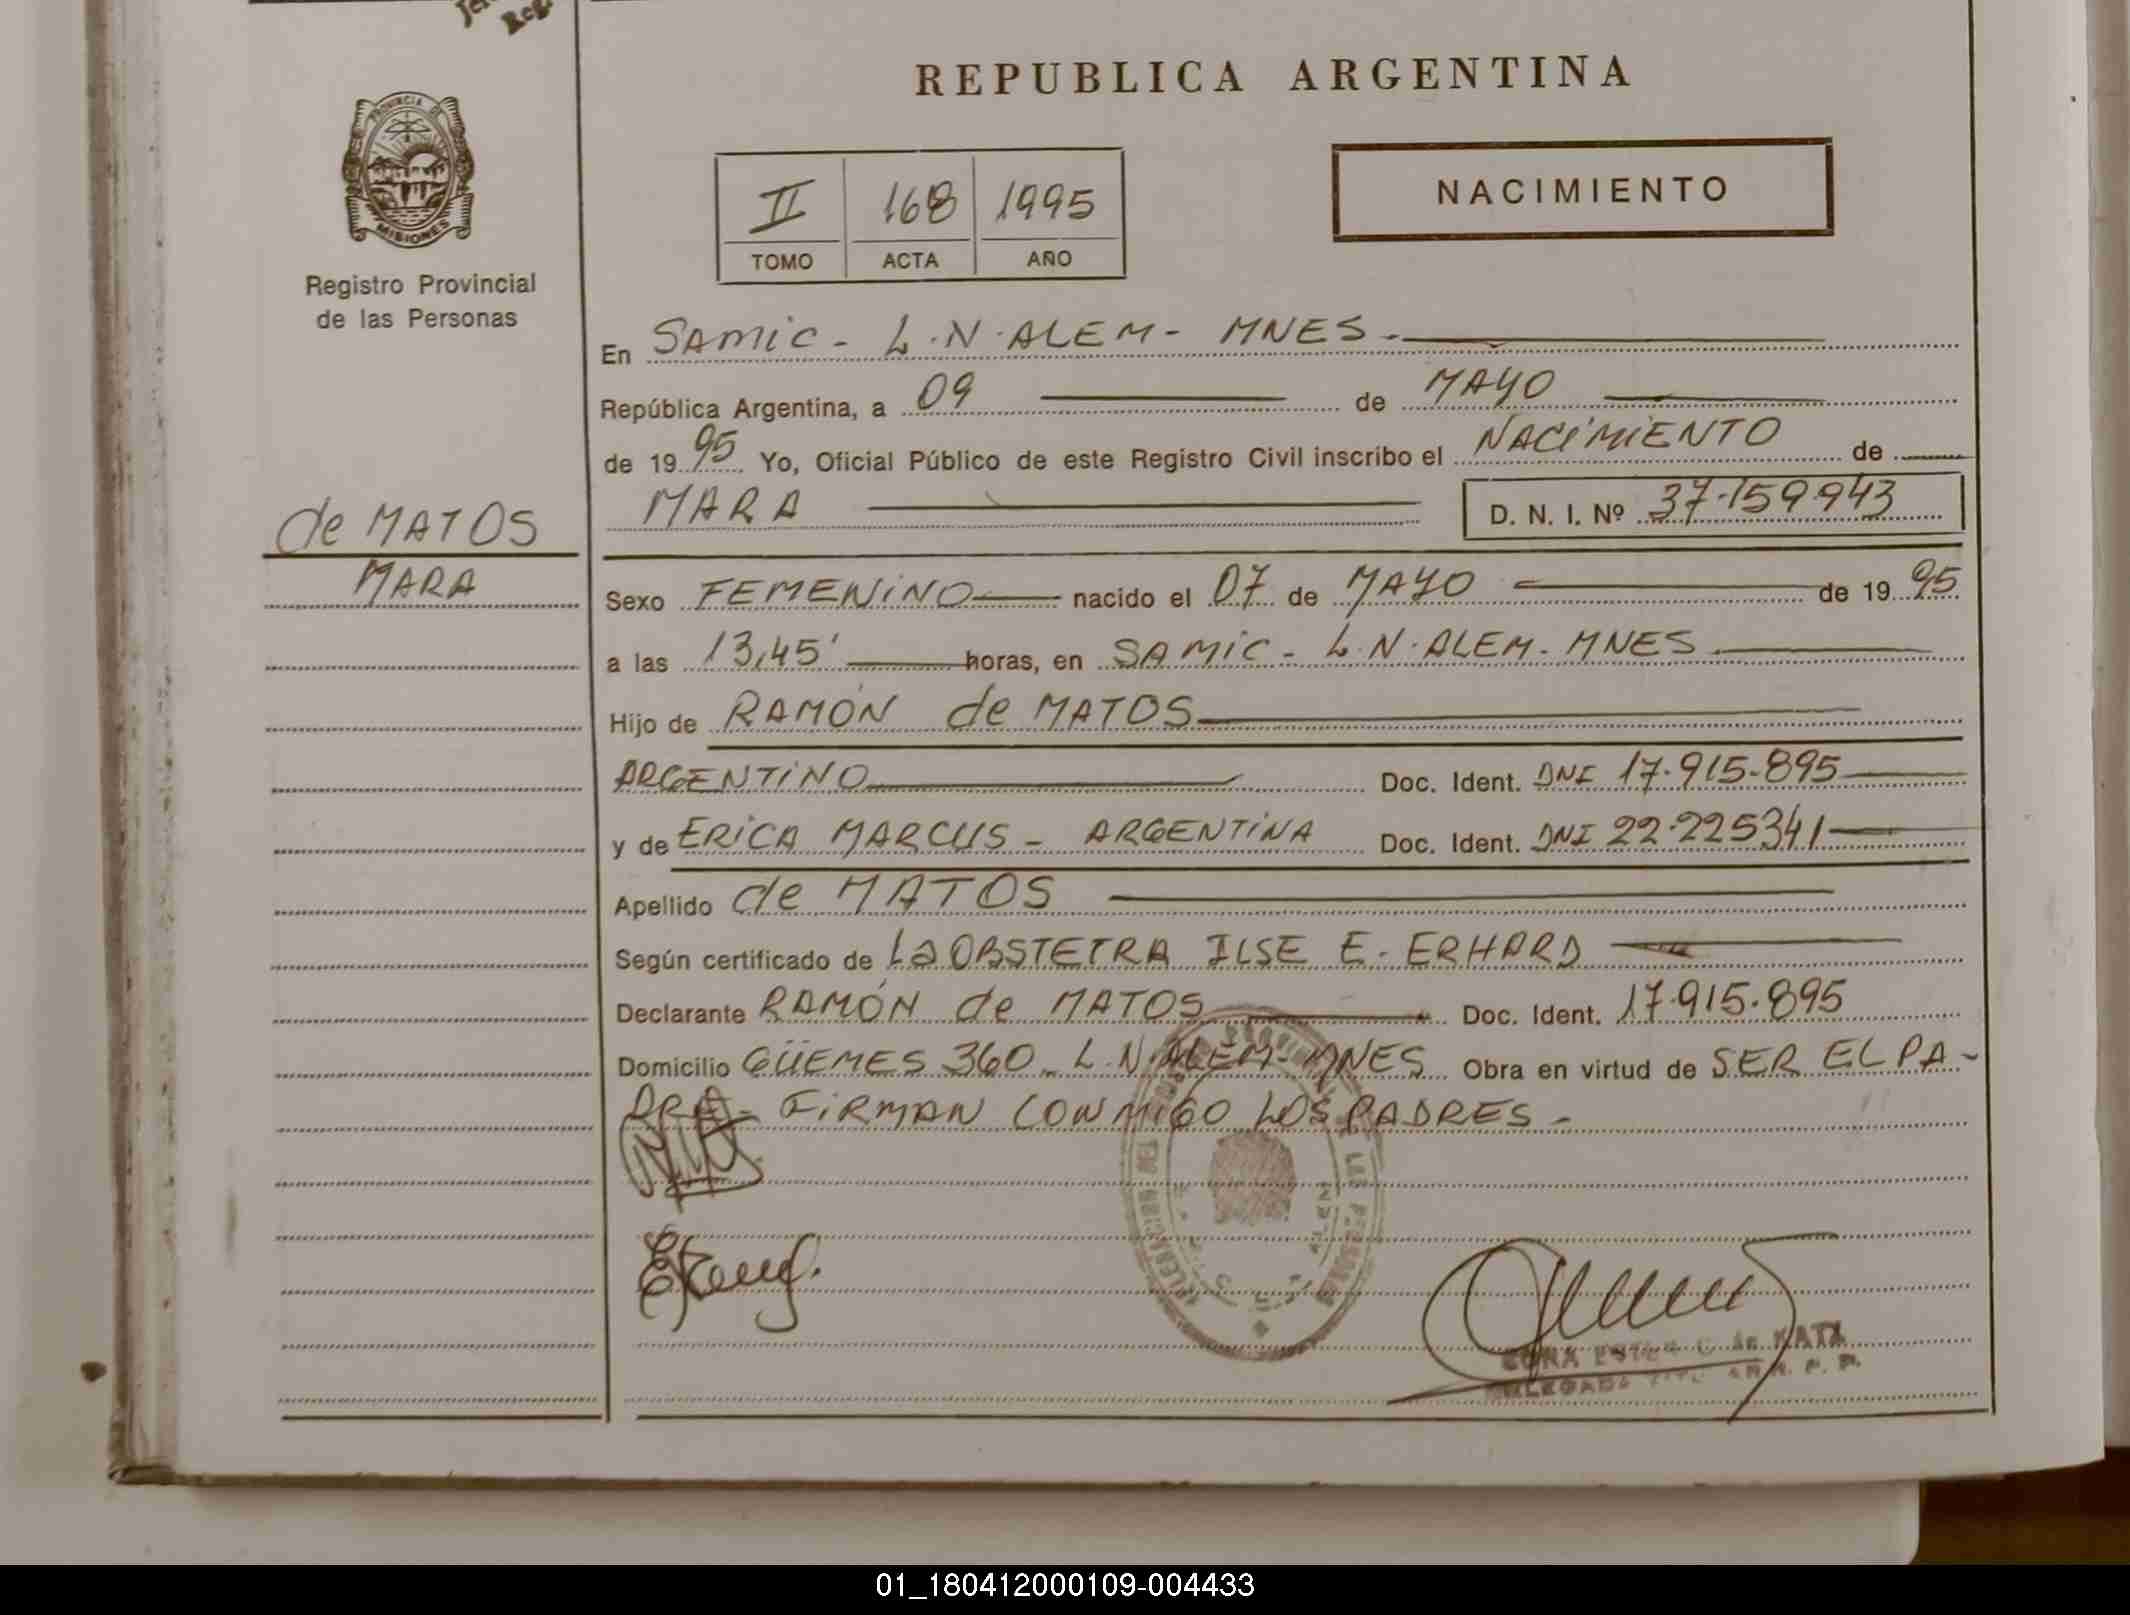 REPUBLICA ARGENTINA
PROVINCIA DE
MISIONES
Registro Provincial
de las Personas
NACIMIENTO
II 168 1995
TOMO ACTA AÑO
En SAMIC - L.N.ALEM - MNES.
República Argentina, a 09 de MAYO
de 1995 Yo, Oficial Público de este Registro Civil inscribo el NACIMIENTO de
MARA D. N. I. Nº 37.159.943
de MATOS
MARA
Sexo FEMENINO nacido el 07 de MAYO de 1995
a las 13,45' horas, en SAMIC - L.N.ALEM - MNES
Hijo de RAMÓN de MATOS
ARGENTINO Doc. Ident. DNI 17.915.895
y de ERICA MARCUS - ARGENTINA Doc. Ident. DNI 22.225341
Apellido de MATOS
Según certificado de La OBSTETRA ILSE E. ERHARD
Declarante RAMÓN de MATOS Doc. Ident. 17.915.895
Domicilio GÜEMES 360 - L.N.ALEM - MNES Obra en virtud de SER EL PA-
DRE - FIRMAN CONMIGO LOS PADRES -
01_180412000109-004433